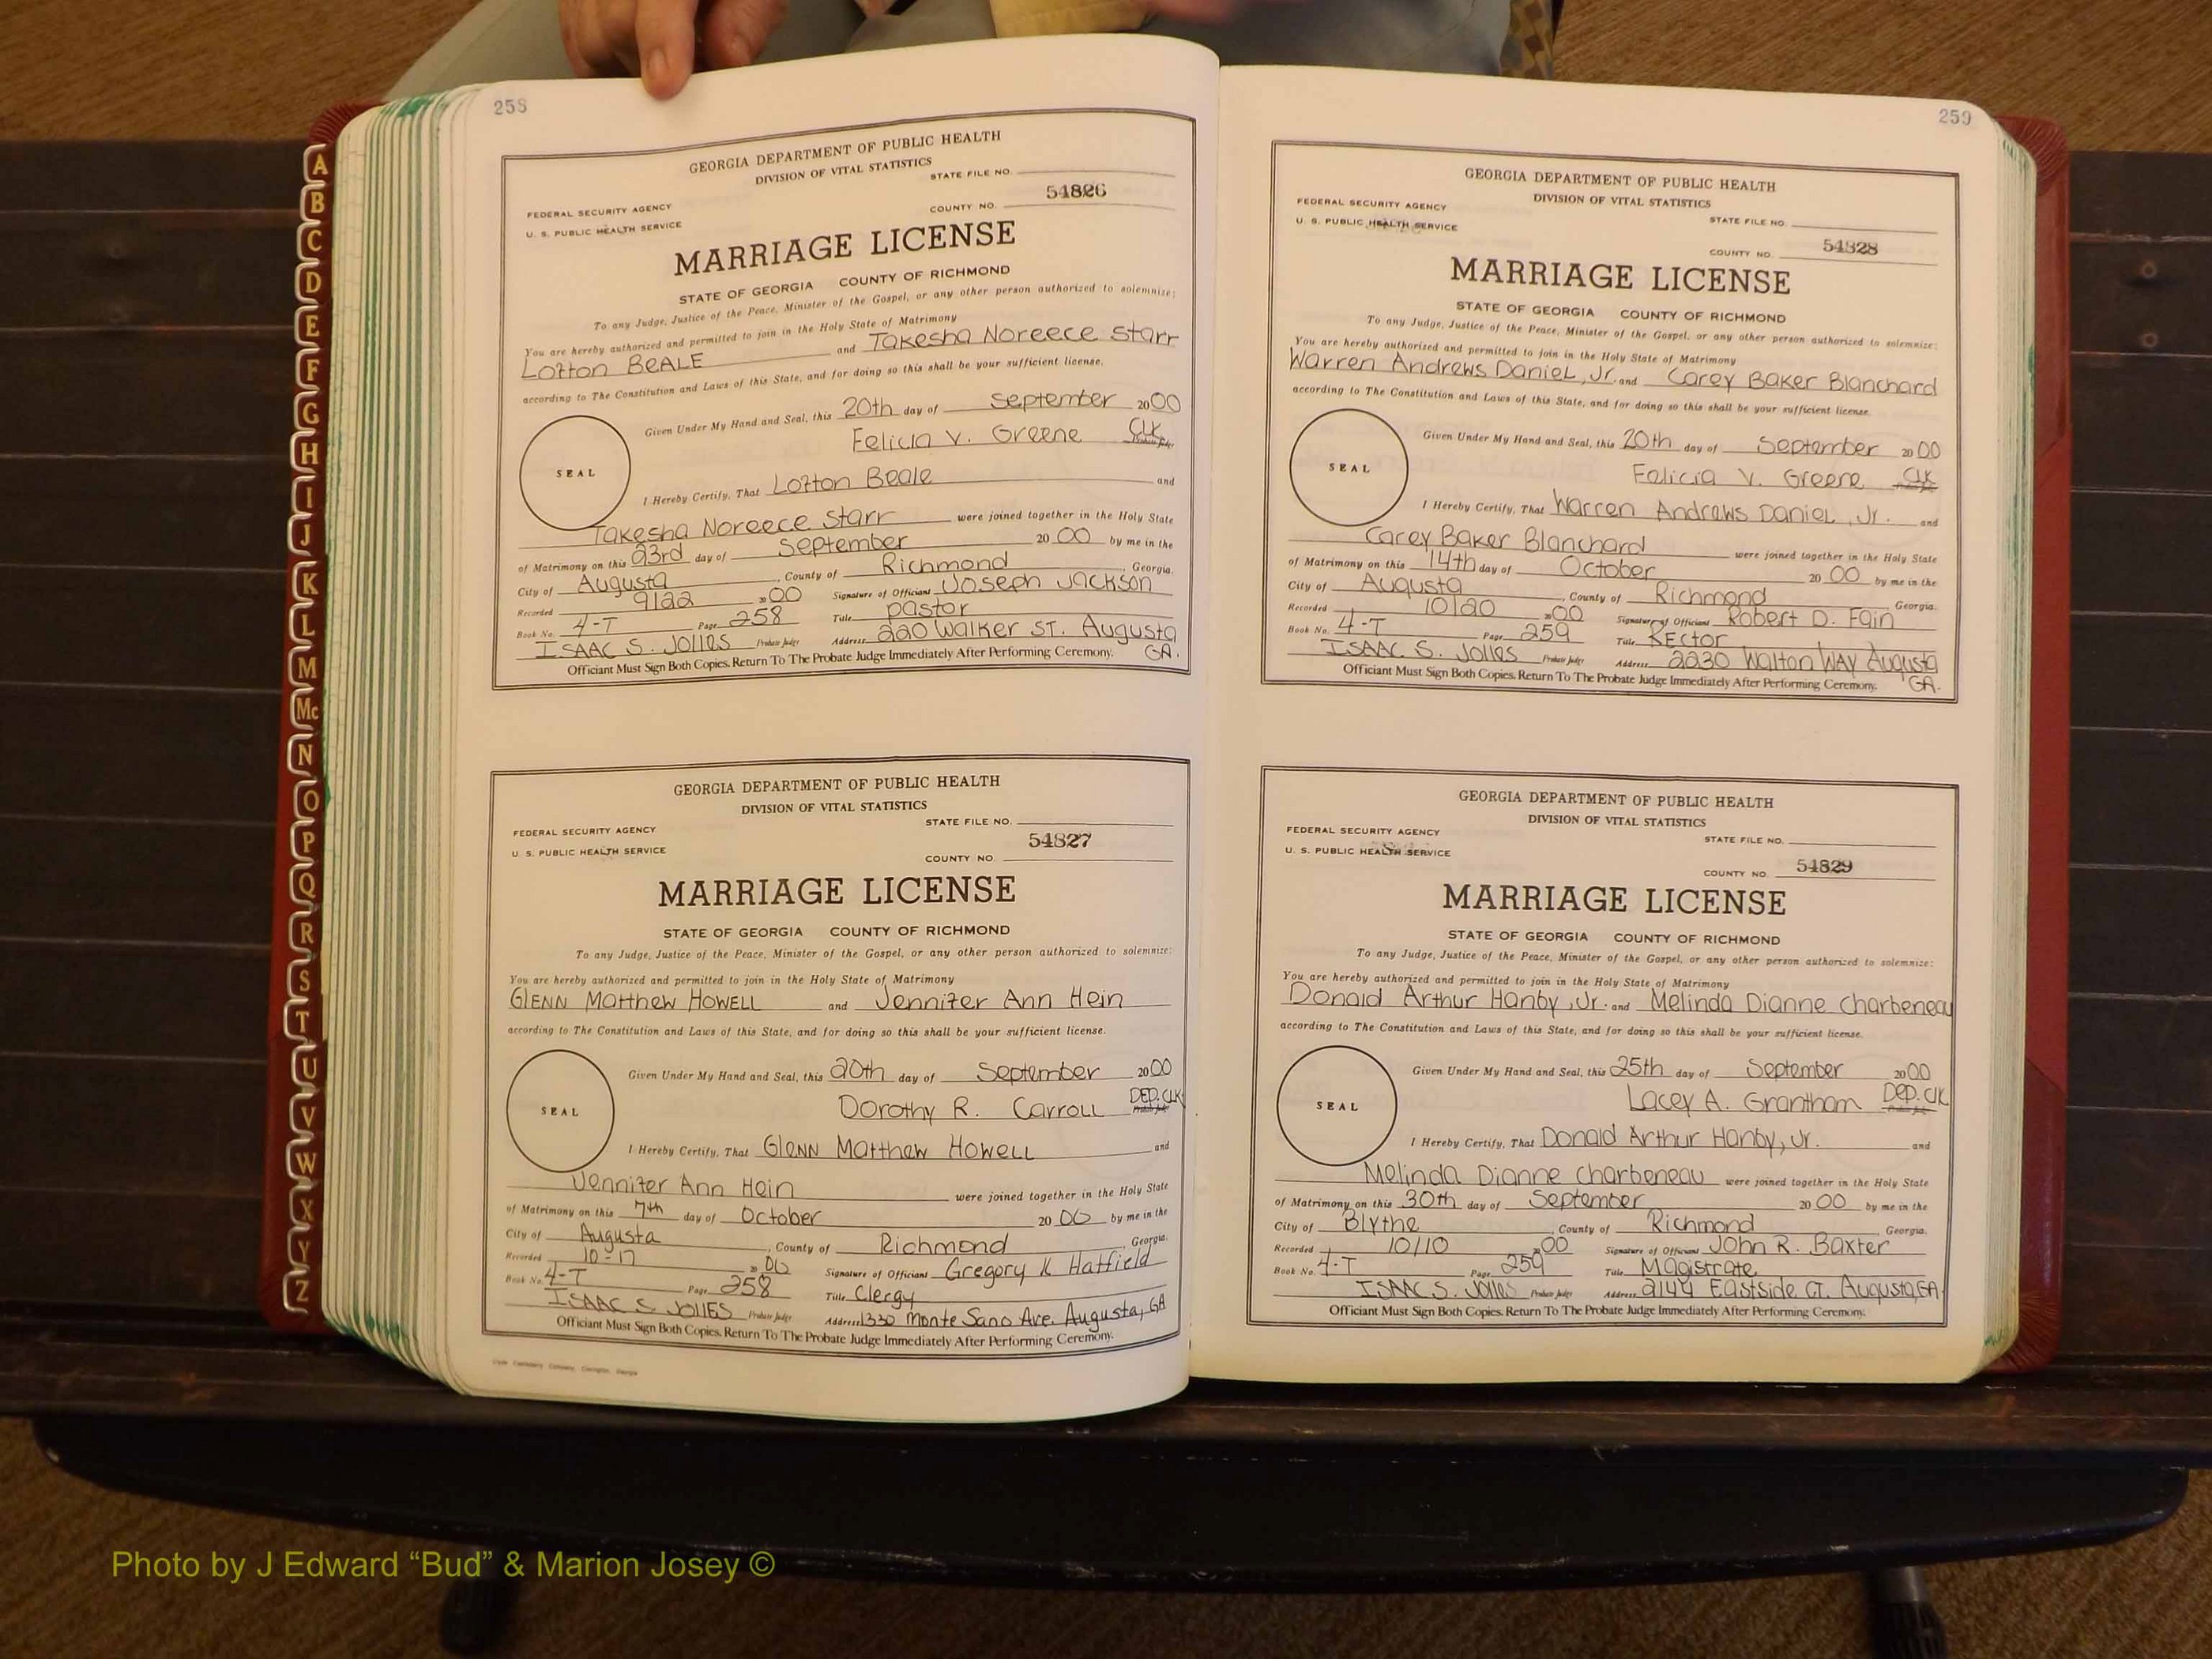 258
GEORGIA DEPARTMENT OF PUBLIC HEALTH
DIVISION OF VITAL STATISTICS
STATE FILE NO.
FEDERAL SECURITY AGENCY
54826
U. S. PUBLIC HEALTH SERVICE
COUNTY NO.
MARRIAGE LICENSE
STATE OF GEORGIA COUNTY OF RICHMOND
To any Judge, Justice of the Peace, Minister of the Gospel, or any other person authorized to solemnize:
You are hereby authorized and permitted to join in the Holy State of Matrimony
Lofton BEALE and Takesha Noreece Starr
according to The Constitution and Laws of this State, and for doing so this shall be your sufficient license.
Given Under My Hand and Seal, this 20th day of September 2000
Felicia V. Greene CLK
SEAL
I Hereby Certify, That Lofton Beale and
Takesha Noreece Starr were joined together in the Holy State
of Matrimony on this 23rd day of September 20 00 by me in the
City of Augusta, County of Richmond, Georgia.
Recorded 9/22 2000 Signature of Officiant Joseph Jackson
Book No. 4-T Page 258 Title pastor
ISAAC S. JOLLES Probate Judge Address 220 Walker ST. Augusta GA.
Officiant Must Sign Both Copies. Return To The Probate Judge Immediately After Performing Ceremony.
GEORGIA DEPARTMENT OF PUBLIC HEALTH
DIVISION OF VITAL STATISTICS
STATE FILE NO.
FEDERAL SECURITY AGENCY
54827
U. S. PUBLIC HEALTH SERVICE
COUNTY NO.
MARRIAGE LICENSE
STATE OF GEORGIA COUNTY OF RICHMOND
To any Judge, Justice of the Peace, Minister of the Gospel, or any other person authorized to solemnize:
You are hereby authorized and permitted to join in the Holy State of Matrimony
GLENN Matthew HOWELL and Jennifer Ann Hein
according to The Constitution and Laws of this State, and for doing so this shall be your sufficient license.
Given Under My Hand and Seal, this 20th day of September 2000
Dorothy R. Carroll DEP. CLK
SEAL
I Hereby Certify, That Glenn Matthew Howell and
Jennifer Ann Hein were joined together in the Holy State
of Matrimony on this 7th day of October 20 00 by me in the
City of Augusta, County of Richmond, Georgia.
Recorded 10-17 2000 Signature of Officiant Gregory K Hatfield
Book No. 4-T Page 258 Title Clergy
ISAAC S. JOLLES Probate Judge Address 1330 Monte Sano Ave. Augusta, GA
Officiant Must Sign Both Copies. Return To The Probate Judge Immediately After Performing Ceremony.
259
GEORGIA DEPARTMENT OF PUBLIC HEALTH
DIVISION OF VITAL STATISTICS
FEDERAL SECURITY AGENCY
STATE FILE NO.
U. S. PUBLIC HEALTH SERVICE
54828
COUNTY NO.
MARRIAGE LICENSE
STATE OF GEORGIA COUNTY OF RICHMOND
To any Judge, Justice of the Peace, Minister of the Gospel, or any other person authorized to solemnize:
You are hereby authorized and permitted to join in the Holy State of Matrimony
Warren Andrews Daniel, Jr. and Carey Baker Blanchard
according to The Constitution and Laws of this State, and for doing so this shall be your sufficient license.
Given Under My Hand and Seal, this 20th day of September 2000
Felicia V. Greene CLK
SEAL
I Hereby Certify, That Warren Andrews Daniel, Jr. and
Carey Baker Blanchard were joined together in the Holy State
of Matrimony on this 14th day of October 20 00 by me in the
City of Augusta, County of Richmond, Georgia.
Recorded 10/20 2000 Signature of Officiant Robert D. Fain
Book No. 4-T Page 259 Title RECtor
ISAAC S. Jolles Probate Judge Address 2230 Walton WAY Augusta GA.
Officiant Must Sign Both Copies. Return To The Probate Judge Immediately After Performing Ceremony.
GEORGIA DEPARTMENT OF PUBLIC HEALTH
DIVISION OF VITAL STATISTICS
FEDERAL SECURITY AGENCY
STATE FILE NO.
U. S. PUBLIC HEALTH SERVICE
54829
COUNTY NO.
MARRIAGE LICENSE
STATE OF GEORGIA COUNTY OF RICHMOND
To any Judge, Justice of the Peace, Minister of the Gospel, or any other person authorized to solemnize:
You are hereby authorized and permitted to join in the Holy State of Matrimony
Donald Arthur Hanby, Jr. and Melinda Dianne Charbeneau
according to The Constitution and Laws of this State, and for doing so this shall be your sufficient license.
Given Under My Hand and Seal, this 25th day of September 2000
Lacey A. Grantham DEP. CLK
SEAL
I Hereby Certify, That Donald Arthur Hanby, Jr. and
Melinda Dianne Charbeneau were joined together in the Holy State
of Matrimony on this 30th day of September 20 00 by me in the
City of Blythe, County of Richmond, Georgia.
Recorded 10/10 2000 Signature of Officiant John R. Baxter
Book No. 4-T Page 259 Title Magistrate
ISAAC S. Jolles Probate Judge Address 2144 Eastside CT. Augusta, GA
Officiant Must Sign Both Copies. Return To The Probate Judge Immediately After Performing Ceremony.
A
B
C
D
E
F
G
H
I
J
K
L
M
Mc
N
O
P
Q
R
S
T
U
V
W
X
Y
Z
Photo by J Edward “Bud” & Marion Josey ©